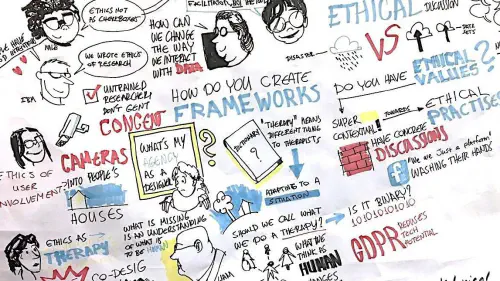 ETHICS NOT
AS CHECKBOXES
NICE
WE WROTE ETHICS
OF RESEARCH
UNTRAINED
RESEARCHERS
DON'T GENT
CONCENT
CAMERAS
INTO PEOPLE'S
HOUSES
ETHICS OF
USER
INVOLVEMENT?
ETHICS AS
THERAPY
CO-DESIG
HOW CAN
WE CHANGE
THE WAY
WE INTERACT
WITH DATA
HOW DO YOU CREATE
FRAMEWORKS
WHAT'S MY
AGENCY
AS A
DESIGNER
?
DICTIONARY
?
"THERAPY" MEANS
DIFFERENT THING
TO THERAPISTS
ADAPTING TO A
SITUATION
WHAT IS MISSING
IS AN UNDERSTANDING
OF WHAT IS
TO BE HUMAN
SHOULD WE CALL WHAT
WE DO A THERAPY?
WHAT WE
THINK IS
HUMAN
CHANGES
DISASTER
ETHICAL
DISCUSSION
VS
DO YOU HAVE
ETHICAL
VALUES?
SUPER
CONTEXTUAL
TOWARDS
ETHICAL
PRACTISES
HAVE CONCRETE
DISCUSSIONS
f
"WE JUST A PLATFORM"
WASHING THEIR HANDS
IS IT BINARY?
10101010101010
GDPR
REDUSES
TECH
POTENTIAL